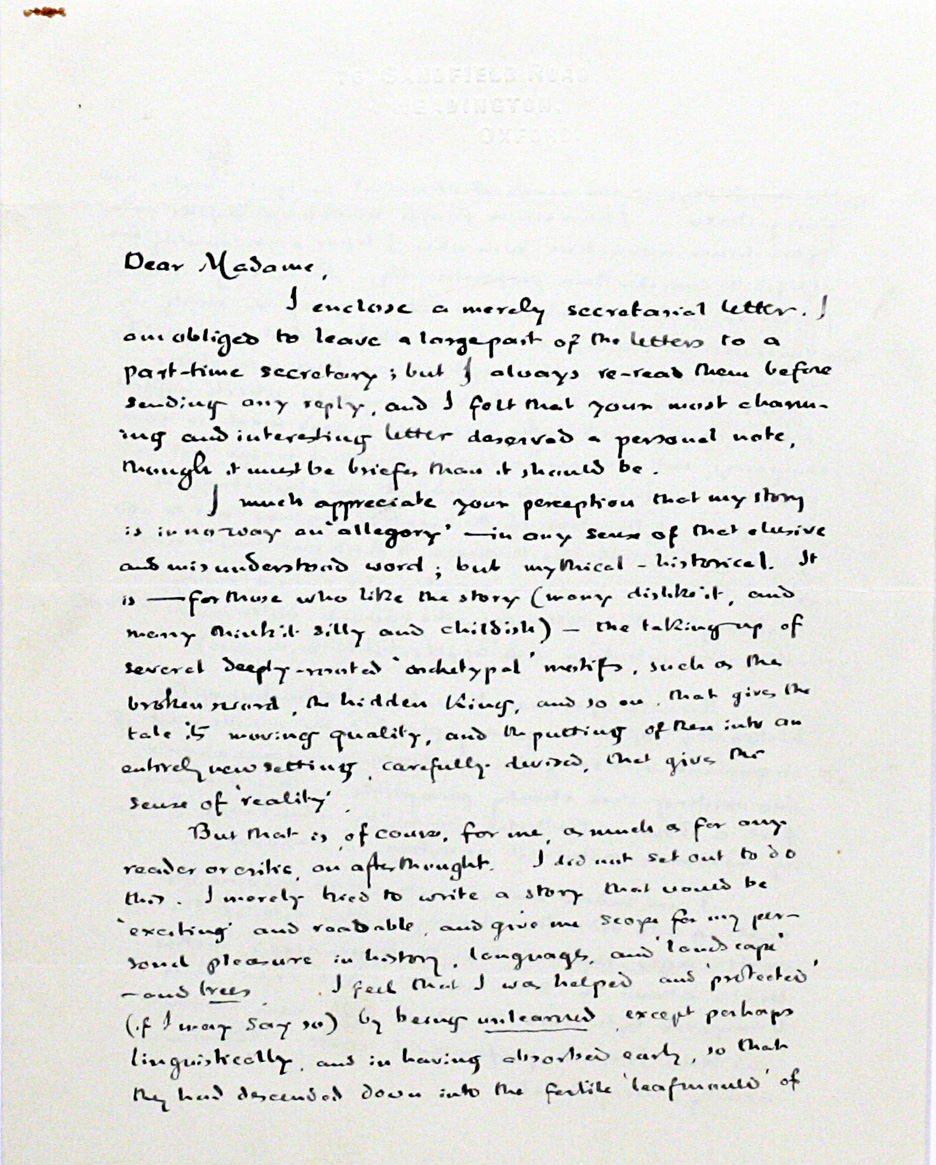 76 SANDFIELD ROAD.
HEADINGTON.
OXFORD.
Dear Madame,
I enclose a merely secretarial letter. I
am obliged to leave a large part of the letters to a
part-time secretary ; but I always re-read them before
sending any reply, and I felt that your most charm-
ing and interesting letter deserved a personal note,
though it must be briefer than it should be.
I much appreciate your perception that my story
is in no way an 'allegory' — in any sense of that elusive
and misunderstood word ; but mythical - historical. It
is — for those who like the story (many dislike it, and
many think it silly and childish) — the taking up of
several deeply-rooted 'archetypal' motifs, such as the
broken sword, the hidden King, and so on, that gives the
tale its moving quality, and the putting of them into an
entirely new setting, carefully devised, that gives the
sense of 'reality'.
But that is, of course, for me, as much as for any
reader or critic, an afterthought. I did not set out to do
this. I merely tried to write a story that would be
'exciting' and readable, and give me scope for my per-
sonal pleasure in history, languages, and 'landscape'
— and trees. I feel that I was helped and 'protected'
(if I may say so) by being unlearned, except perhaps
linguistically, and in having absorbed early, so that
they had descended down into the fertile 'leafmould' of